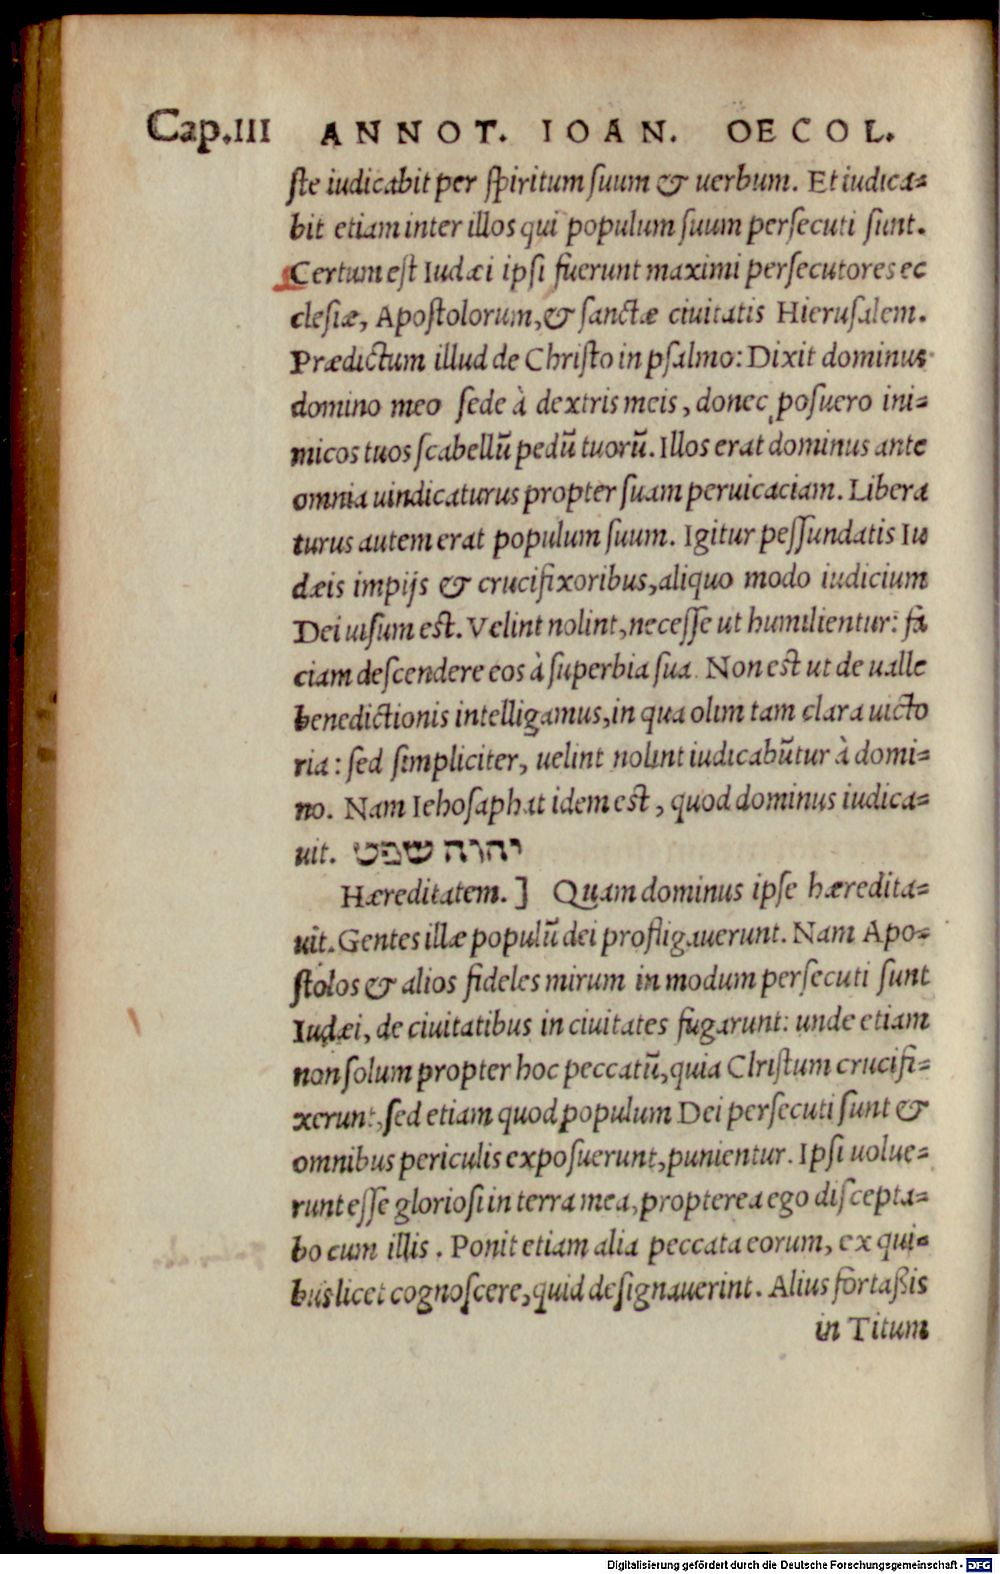 Cap.III ANNOT. IOAN. OECOL.
ste iudicabit per spiritum suum & uerbum. Et iudica=
bit etiam inter illos qui populum suum persecuti sunt.
Certum est Iudæi ipsi fuerunt maximi persecutores ec
clesiæ, Apostolorum, & sanctæ ciuitatis Hierusalem.
Prædictum illud de Christo in psalmo: Dixit dominus
domino meo sede à dextris meis, donec posuero ini=
micos tuos scabellū pedū tuorū. Illos erat dominus ante
omnia uindicaturus propter suam peruicaciam. Libera
turus autem erat populum suum. Igitur pessundatis Iu
dæis impijs & crucifixoribus, aliquo modo iudicium
Dei uisum est. Velint nolint, necesse ut humilientur: fa
ciam descendere eos à superbia sua. Non est ut de ualle
benedictionis intelligamus, in qua olim tam clara uicto
ria: sed simpliciter, uelint nolint iudicabūtur à domi=
no. Nam Iehosaphat idem est, quod dominus iudica=
uit. יהוה שפט
Hæreditatem.] Quam dominus ipse hæredita=
uit. Gentes illæ populū dei profligauerunt. Nam Apo=
stolos & alios fideles mirum in modum persecuti sunt
Iudæi, de ciuitatibus in ciuitates fugarunt: unde etiam
non solum propter hoc peccatū, quia Christum crucifi=
xerunt, sed etiam quod populum Dei persecuti sunt &
omnibus periculis exposuerunt, punientur. Ipsi uolue=
runt esse gloriosi in terra mea, propterea ego discepta=
bo cum illis. Ponit etiam alia peccata eorum, ex qui=
bus licet cognoscere, quid designauerint. Alius fortaßis
in Titum
Digitalisierung gefördert durch die Deutsche Forschungsgemeinschaft - DFG